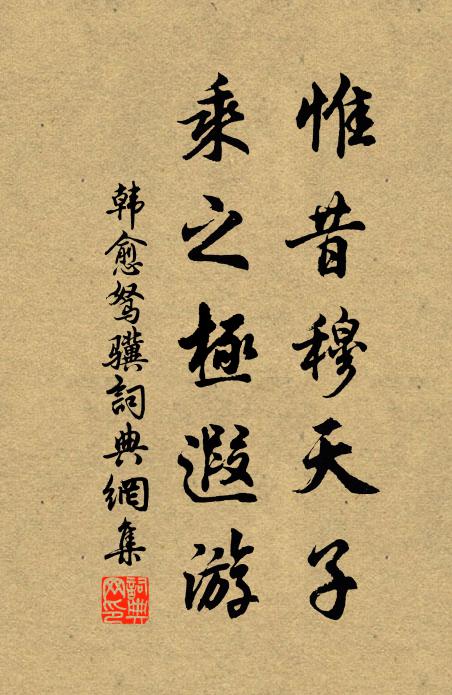 惟昔穆天子
乘之極遐游
韩愈驽骥詞典網集
詞典網印